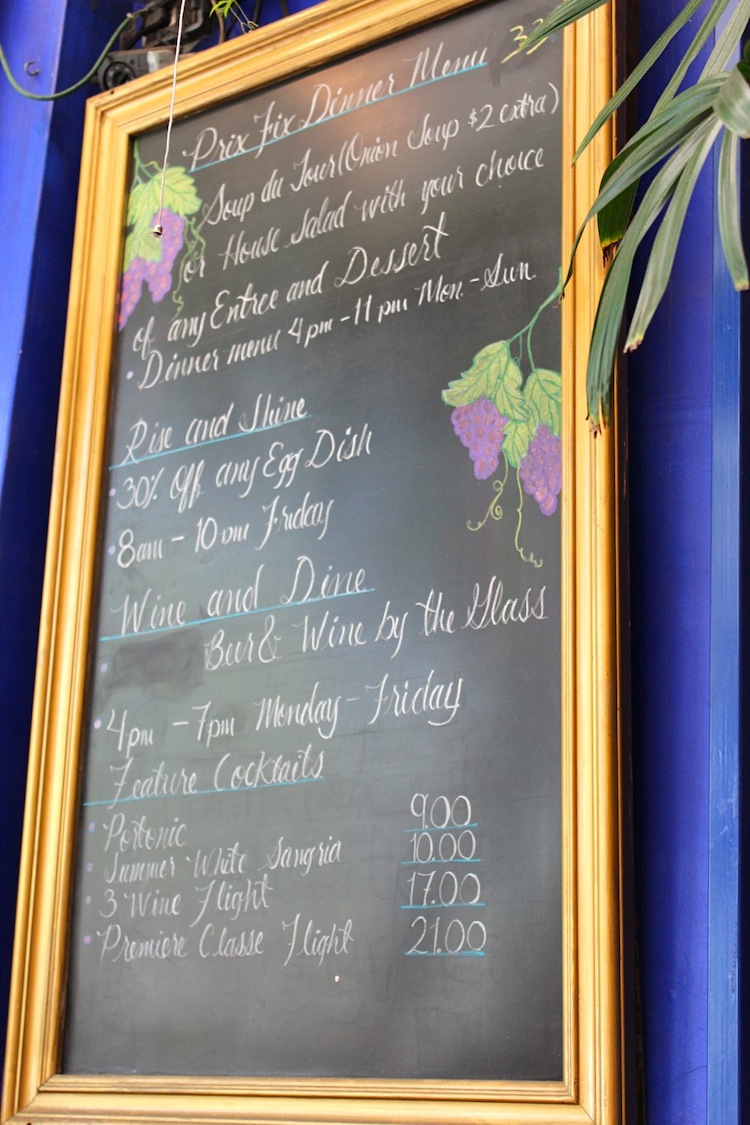 Prix Fix Dinner Menu
Soup du Jour (Onion Soup $2 extra)
or House salad with your choice
of any Entree and Dessert
• Dinner menu 4pm - 11pm Mon. - Sun.
Rise and Shine
• 30% Off any Egg Dish
• 8am - 10am Friday
Wine and Dine
• Beer & Wine by the Glass
• 4pm - 7pm Monday - Friday
Feature Cocktails
• Portonic 9.00
• Summer White Sangria 10.00
• 3 Wine Flight 17.00
• Premiere Classe Flight 21.00